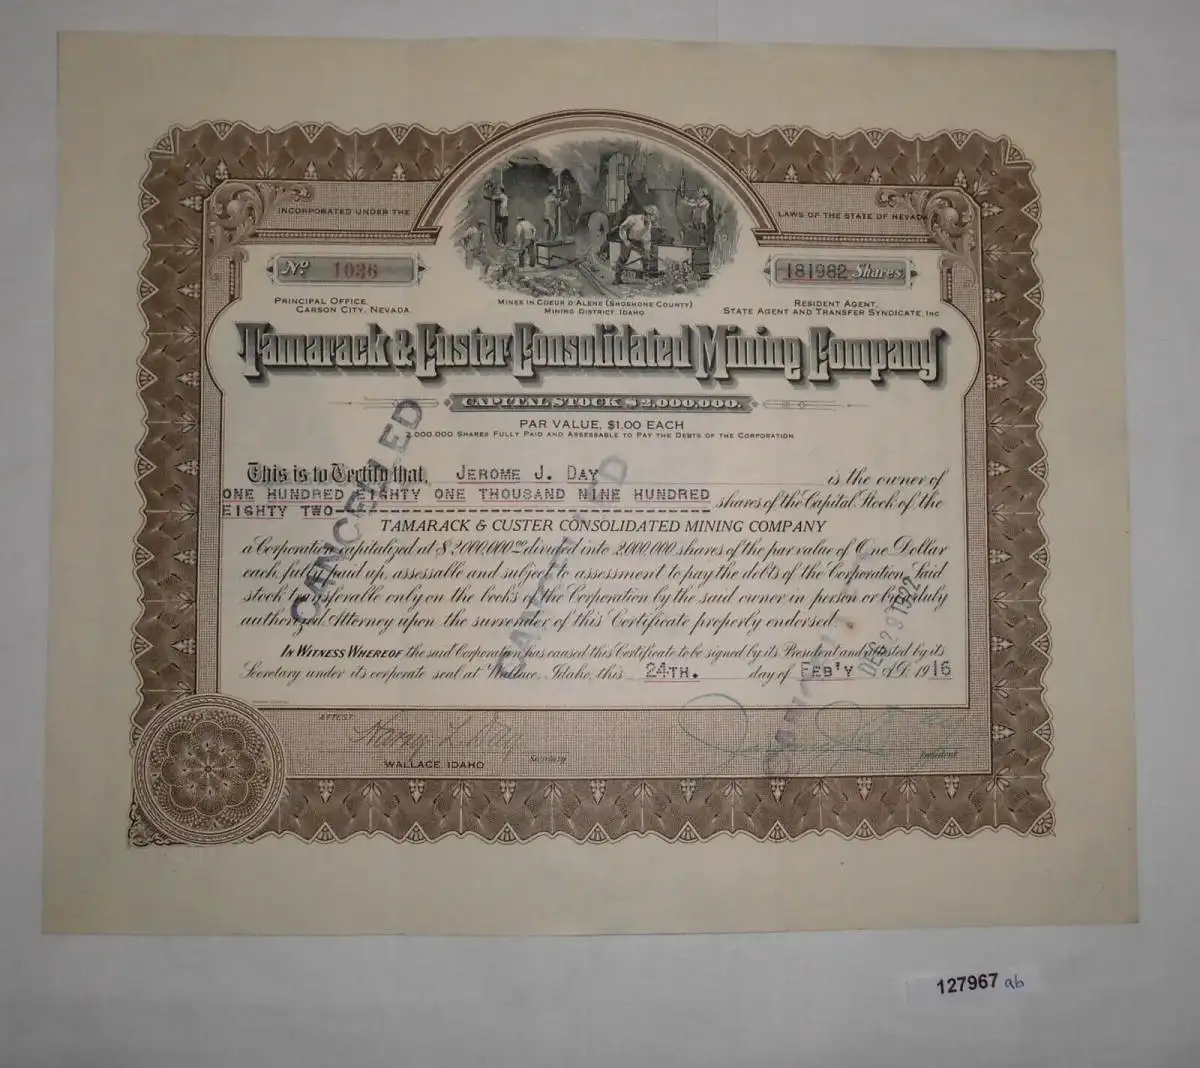 INCORPORATED UNDER THE
LAWS OF THE STATE OF NEVADA
No 1036
181982 Shares
PRINCIPAL OFFICE,
CARSON CITY, NEVADA
MINES IN COEUR D'ALENE (SHOSHONE COUNTY)
MINING DISTRICT, IDAHO
RESIDENT AGENT,
STATE AGENT AND TRANSFER SYNDICATE, INC
Tamarack & Custer Consolidated Mining Company
CAPITAL STOCK $2,000,000.
PAR VALUE, $1.00 EACH
2,000,000 SHARES FULLY PAID AND ASSESSABLE TO PAY THE DEBTS OF THE CORPORATION
This is to Certify that, JEROME J. DAY is the owner of
ONE HUNDRED EIGHTY ONE THOUSAND NINE HUNDRED
EIGHTY TWO---------- shares of the Capital Stock of the
TAMARACK & CUSTER CONSOLIDATED MINING COMPANY
a Corporation capitalized at $2,000,000.00 divided into 2,000,000 shares of the par value of One Dollar
each, fully paid up, assessable and subject to assessment to pay the debts of the Corporation. Said
stock transferable only on the books of the Corporation by the said owner in person or by duly
authorized Attorney upon the surrender of this Certificate properly endorsed.
IN WITNESS WHEREOF the said Corporation has caused this Certificate to be signed by its President and attested by its
Secretary under its corporate seal at Wallace, Idaho, this 24TH. day of FEB'Y A.D. 1916
CANCELLED
CANCELLED
CANCELLED
DEC 29 1922
ATTEST
Harry L. Day
Secretary
WALLACE, IDAHO
President
127967 ab